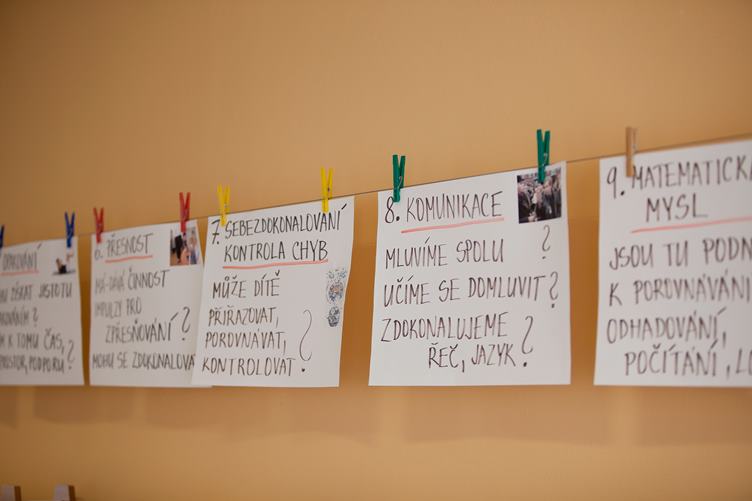 OPAKOVÁNÍ
ZÍSKAT JISTOTU
K TOMU ČAS,
PODPORU?
6. PŘESNOST
MÁ-DÁVÁ ČINNOST
IMPULZY PRO
ZPŘESŇOVÁNÍ?
MOHU SE ZDOKONALOVA
7. SEBEZDOKONALOVÁNÍ
KONTROLA CHYB
MŮŽE DÍTĚ
PŘIŘAZOVAT,
POROVNÁVAT,
KONTROLOVAT?
8. KOMUNIKACE
MLUVÍME SPOLU?
UČÍME SE DOMLUVIT?
ZDOKONALUJEME
ŘEČ, JAZYK?
9. MATEMATICKÁ
MYSL
JSOU TU PODN
K POROVNÁVÁNÍ
ODHADOVÁNÍ,
POČÍTÁNÍ, LO